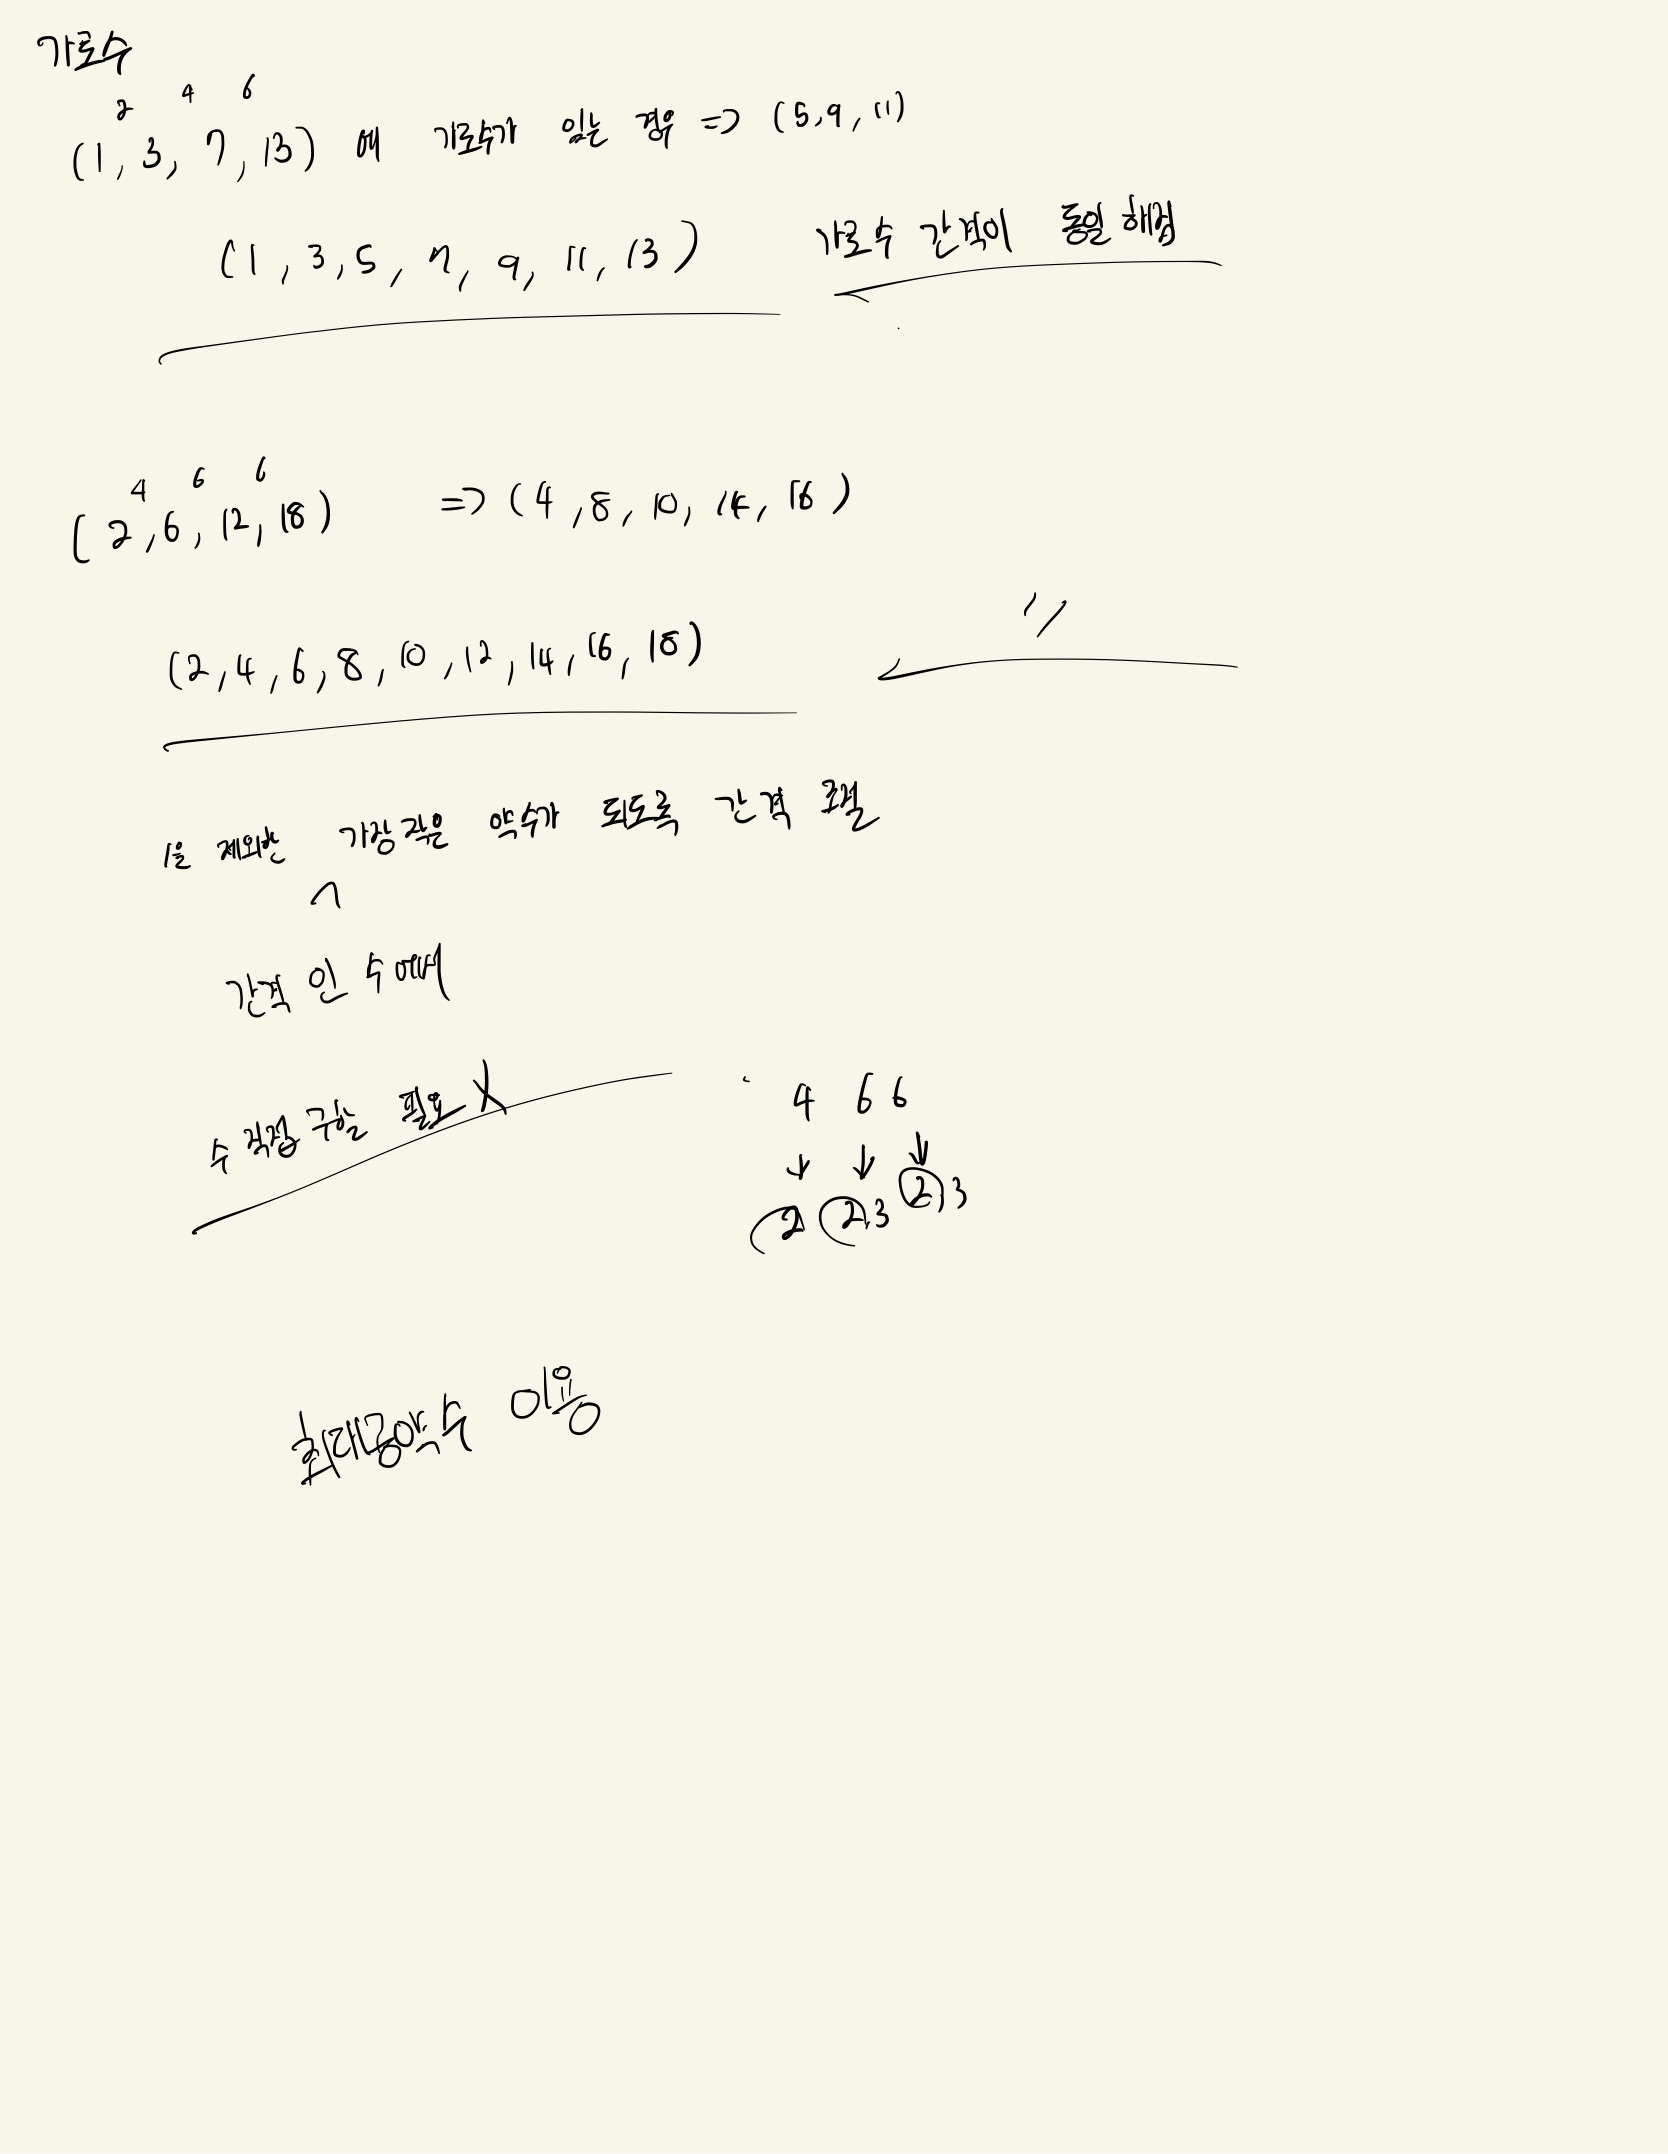 가로수
2 4 6
(1, 3, 7, 13) 에 가로수가 있는 경우 => (5,9,11)
(1, 3, 5, 7, 9, 11, 13) 가로수 간격이 동일해짐
4 6 6
(2, 6, 12, 18) => (4, 8, 10, 14, 16)
(2, 4, 6, 8, 10, 12, 14, 16, 18) 〃
1을 제외한 가장 작은 약수가 되도록 간격 조절
^
간격 인 수에서
수 직접 구할 필요 X
4 6 6
↓ ↓ ↓
2 2,3 2,3
최대공약수 이용